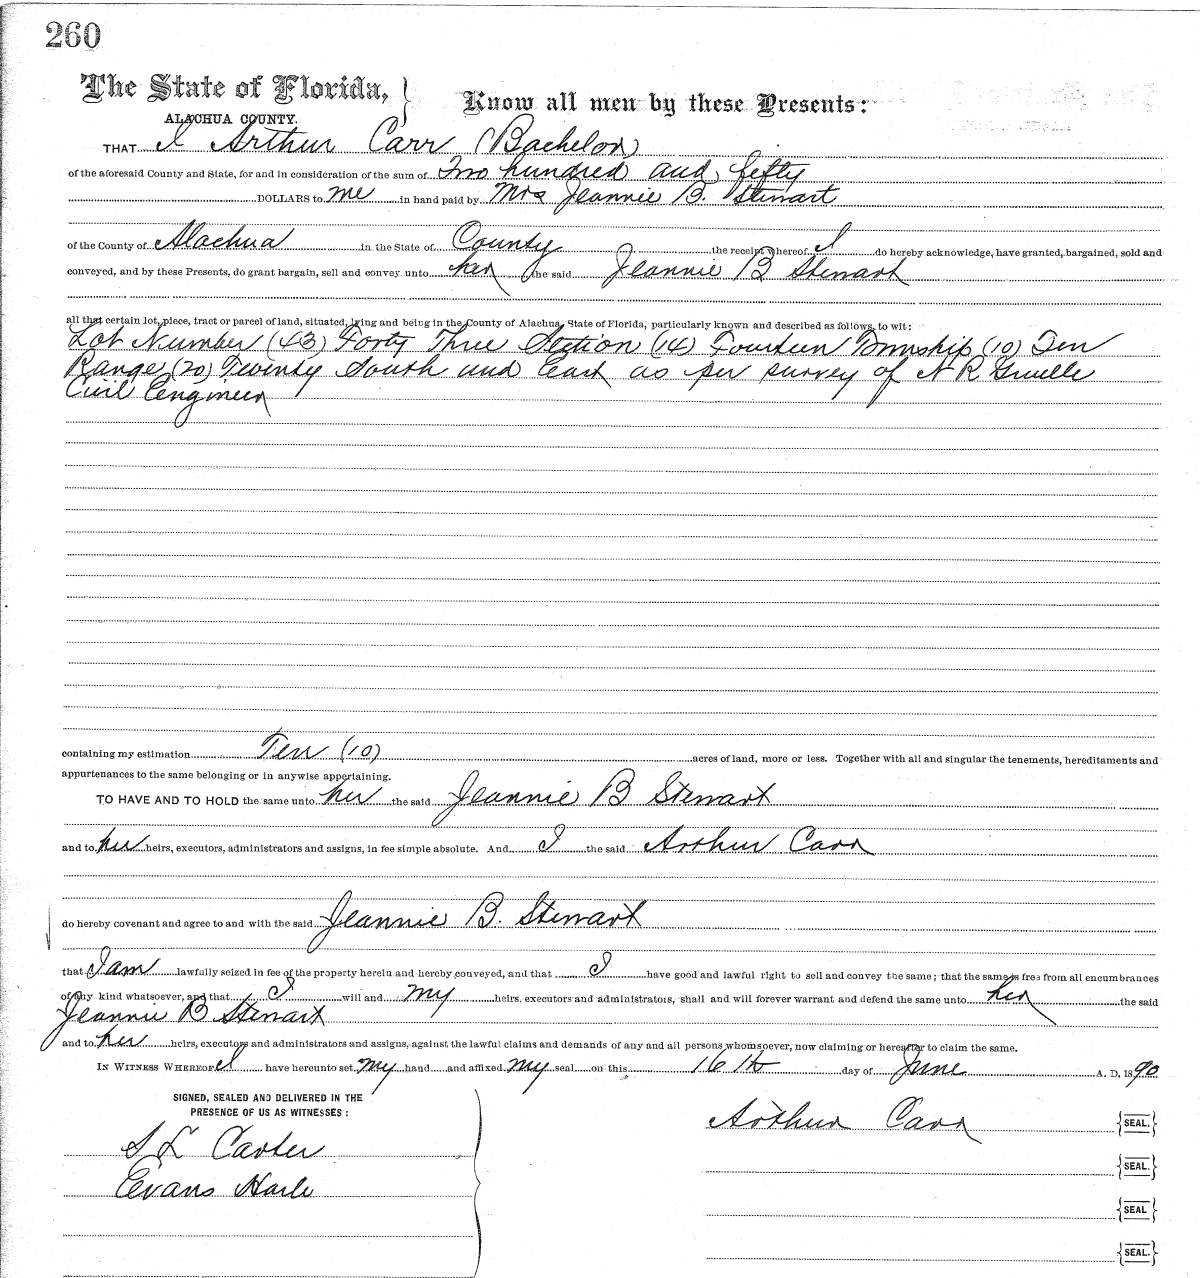 260
The State of Florida,
ALACHUA COUNTY.
Know all men by these Presents:
THAT I Arthur Carr (Bachelor)
of the aforesaid County and State, for and in consideration of the sum of Two hundred and fifty
DOLLARS to me in hand paid by Mrs Jeannie B. Stewart
of the County of Alachua in the State of County the receipt whereof I do hereby acknowledge, have granted, bargained, sold and
conveyed, and by these Presents, do grant bargain, sell and convey unto her the said Jeannie B Stewart
all that certain lot, piece, tract or parcel of land, situated, lying and being in the County of Alachua, State of Florida, particularly known and described as follows, to wit:
Lot Number (43) Forty Three Section (14) Fourteen Township (10) Ten
Range (20) Twenty South and East as per survey of N R Gruelle
Civil Engineer
containing my estimation Ten (10) acres of land, more or less. Together with all and singular the tenements, hereditaments and
appurtenances to the same belonging or in anywise appertaining.
TO HAVE AND TO HOLD the same unto her the said Jeannie B Stewart
and to her heirs, executors, administrators and assigns, in fee simple absolute. And I the said Arthur Carr
do hereby covenant and agree to and with the said Jeannie B. Stewart
that I am lawfully seized in fee of the property herein and hereby conveyed, and that I have good and lawful right to sell and convey the same; that the same is free from all encumbrances
of any kind whatsoever, and that I will and my heirs, executors and administrators, shall and will forever warrant and defend the same unto her the said
Jeannie B Stewart
and to her heirs, executors and administrators and assigns, against the lawful claims and demands of any and all persons whomsoever, now claiming or hereafter to claim the same.
IN WITNESS WHEREOF I have hereunto set my hand and affixed my seal on this 16th day of June A. D. 1890
SIGNED, SEALED AND DELIVERED IN THE
PRESENCE OF US AS WITNESSES:
Arthur Carr {SEAL.}
S L Carter
{SEAL.}
Evans Haile
{SEAL}
{SEAL.}